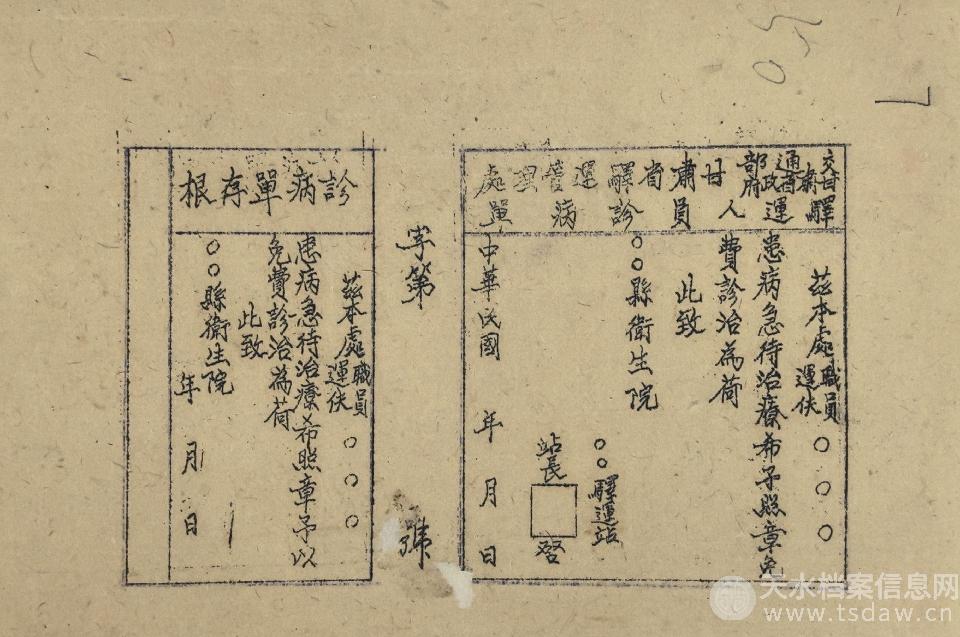 交通部甘肅省驛運管理處
甘肅省政府驛運人員診病單
茲本處職員運伕○○○
患病急待治療希予照章免
費診治為荷
此致
○○縣衛生院
○○驛運站
站長 啓
中華民國 年 月 日
字第 號
診病單存根
茲本處職員運伕○○○
患病急待治療希照章予以
免費診治為荷
此致
○○縣衛生院
年 月 日
天水档案信息网
www.tsdaw.cn